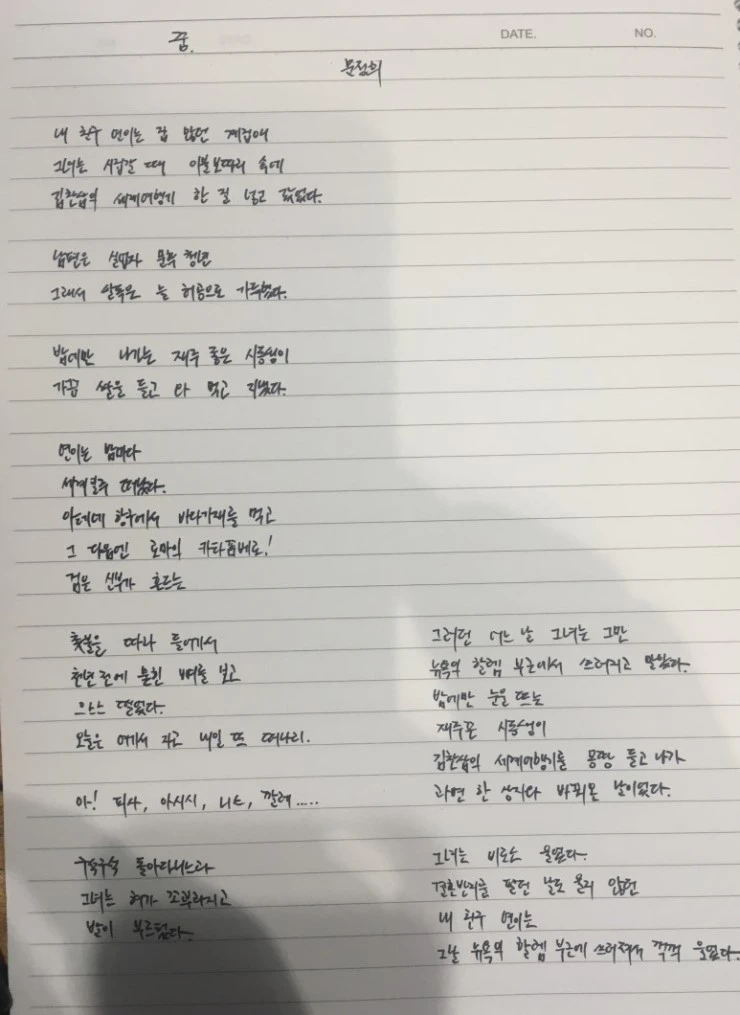 DATE.
NO.
꿈.
문정희
내 친구 연이는 꿈 많던 계집애
그녀는 시집갈 때 이불보따리 속에
김찬삼의 세계여행기 한 질 넣고 갔었다.
남편은 실업자 문학 청년
그래서 쌀독은 늘 허공으로 가득했다.
밤에만 나가는 재주 좋은 시동생이
가끔 쌀을 들고 와 먹고 지냈다.
연이는 밤마다
세계일주 떠났다.
아테네 항구에서 바다가재를 먹고
그 다음엔 로마의 카타꼼베로!
검은 신부가 흔드는
촛불을 따라 들어가서
천년 전에 묻힌 뼈를 보고
으스스 떨었다.
오늘은 여기서 자고 내일 또 떠나리.
아! 피사, 아시시, 니스, 깔레.....
구석구석 돌아다니느라
그녀는 혀가 꼬부라지고
발이 부르텄다.
그러던 어느 날 그녀는 그만
뉴욕의 할렘 부근에서 쓰러지고 말았다.
밤에만 눈을 뜨는
재주꾼 시동생이
김찬삼의 세계여행기를 몽땅 들고 나가
라면 한 상자와 바꿔온 날이었다.
그녀는 비로소 울었다.
결혼반지를 팔던 날도 울지 않던
내 친구 연이는
그날 뉴욕의 할렘 부근에 쓰러져서 꺽꺽 울었다.